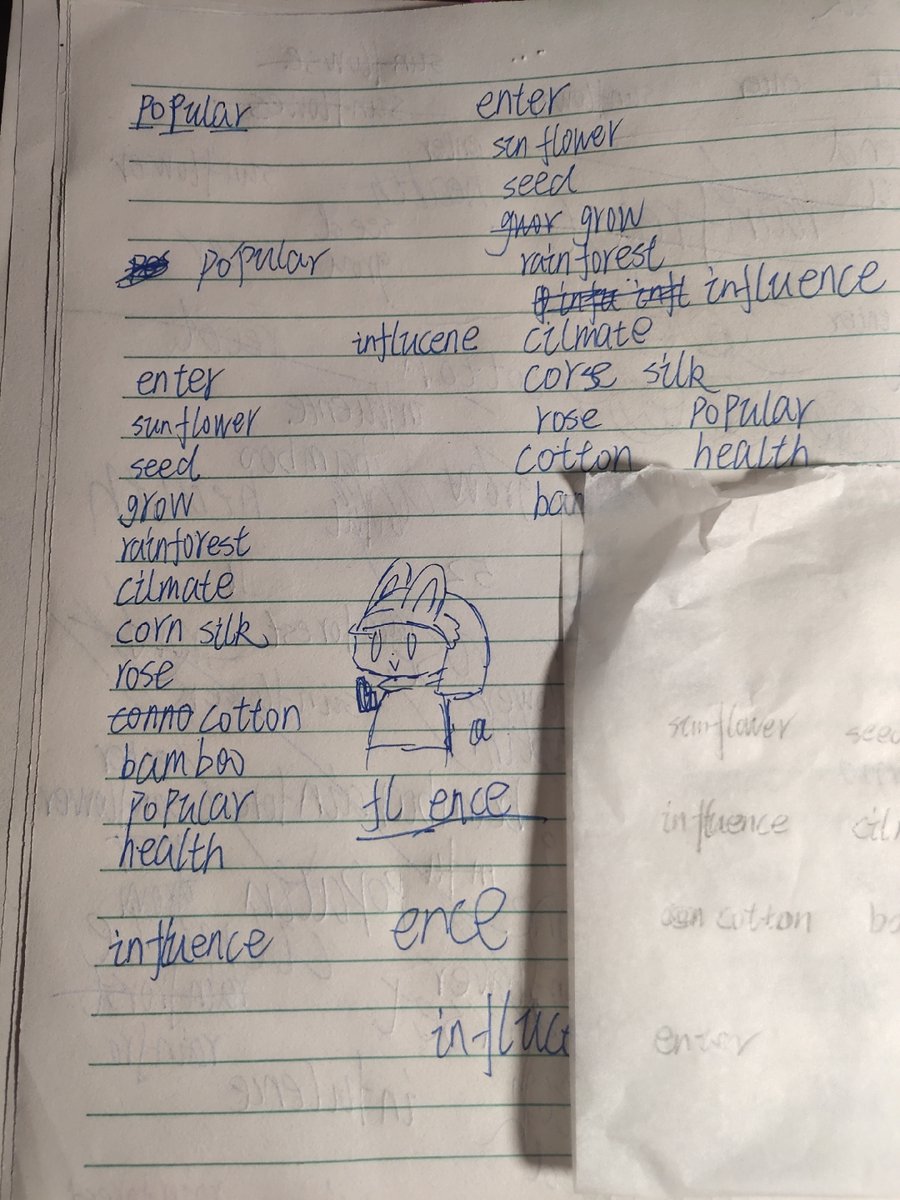 popular
popular
influcene
enter
sunflower
seed
grow
rainforest
cilmate
corn silk
rose
conno cotton
bamboo
popular
health
influence
enter
sunflower
seed
grow
rainforest
influence
cilmate
corse silk
rose popular
cotton health
bam
a
fl ence
ence
influce
sunflower seed
influence cil
cotton bo
enter